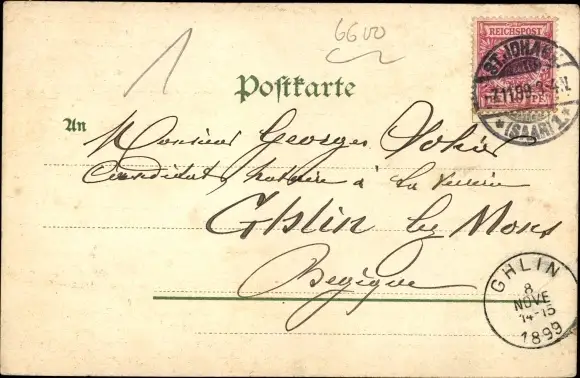 6600
1
REICHSPOST
ST. JOHANN
7.11.99. 3-4.N.
* (SAAR) 1 *
Postkarte
An
Monsieur Georges
Candidat notaire à La
Ghlin lez Mons
Begique
GHLIN
8
NOVE
14-15
1899